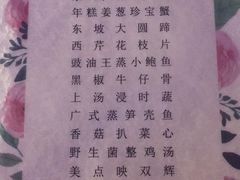 年糕姜葱珍宝蟹
东坡大圆蹄
西芹花枝片
豉油王蒸小鲍鱼
黑椒牛仔骨
上汤浸时蔬
广式蒸笋壳鱼
香菇扒菜心
野生菌整鸡汤
美点映双辉